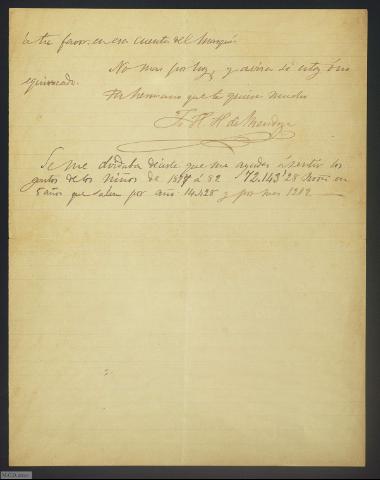 a tu favor: en esa cuenta del Marqués
No mas por hoy, y avisa si estoy ó no
equivocado.
Tu hermano que te quiere mucho
H. de Mendoza
Se me olvidaba decirte que me ayudes á sentir los
gastos de los niños de 1877 á 82 72.143'28 en
5 años que salen por año 14.428 y por mes 1202